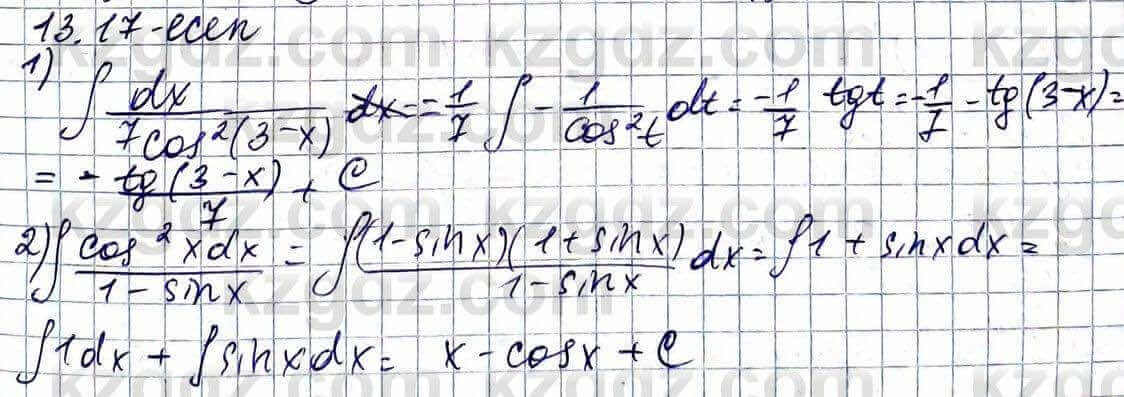 13.17-есеп
1) ∫ dx / 7cos²(3-x) dx = -1/7 ∫ - 1/cos²t dt = -1/7 tgt = -1/7 - tg(3-x) =
= - tg(3-x)/7 + C
2) ∫ cos²xdx / 1-sinx = ∫ (1-sinx)(1+sinx) / 1-sinx dx = ∫1 + sinxdx =
∫1dx + ∫sinxdx = x - cosx + C
kzgdz.com